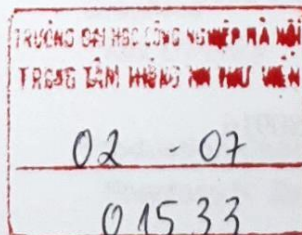 TRƯỜNG ĐẠI HỌC CÔNG NGHIỆP HÀ NỘI
TRUNG TÂM THÔNG TIN THƯ VIỆN
02 - 07
01533